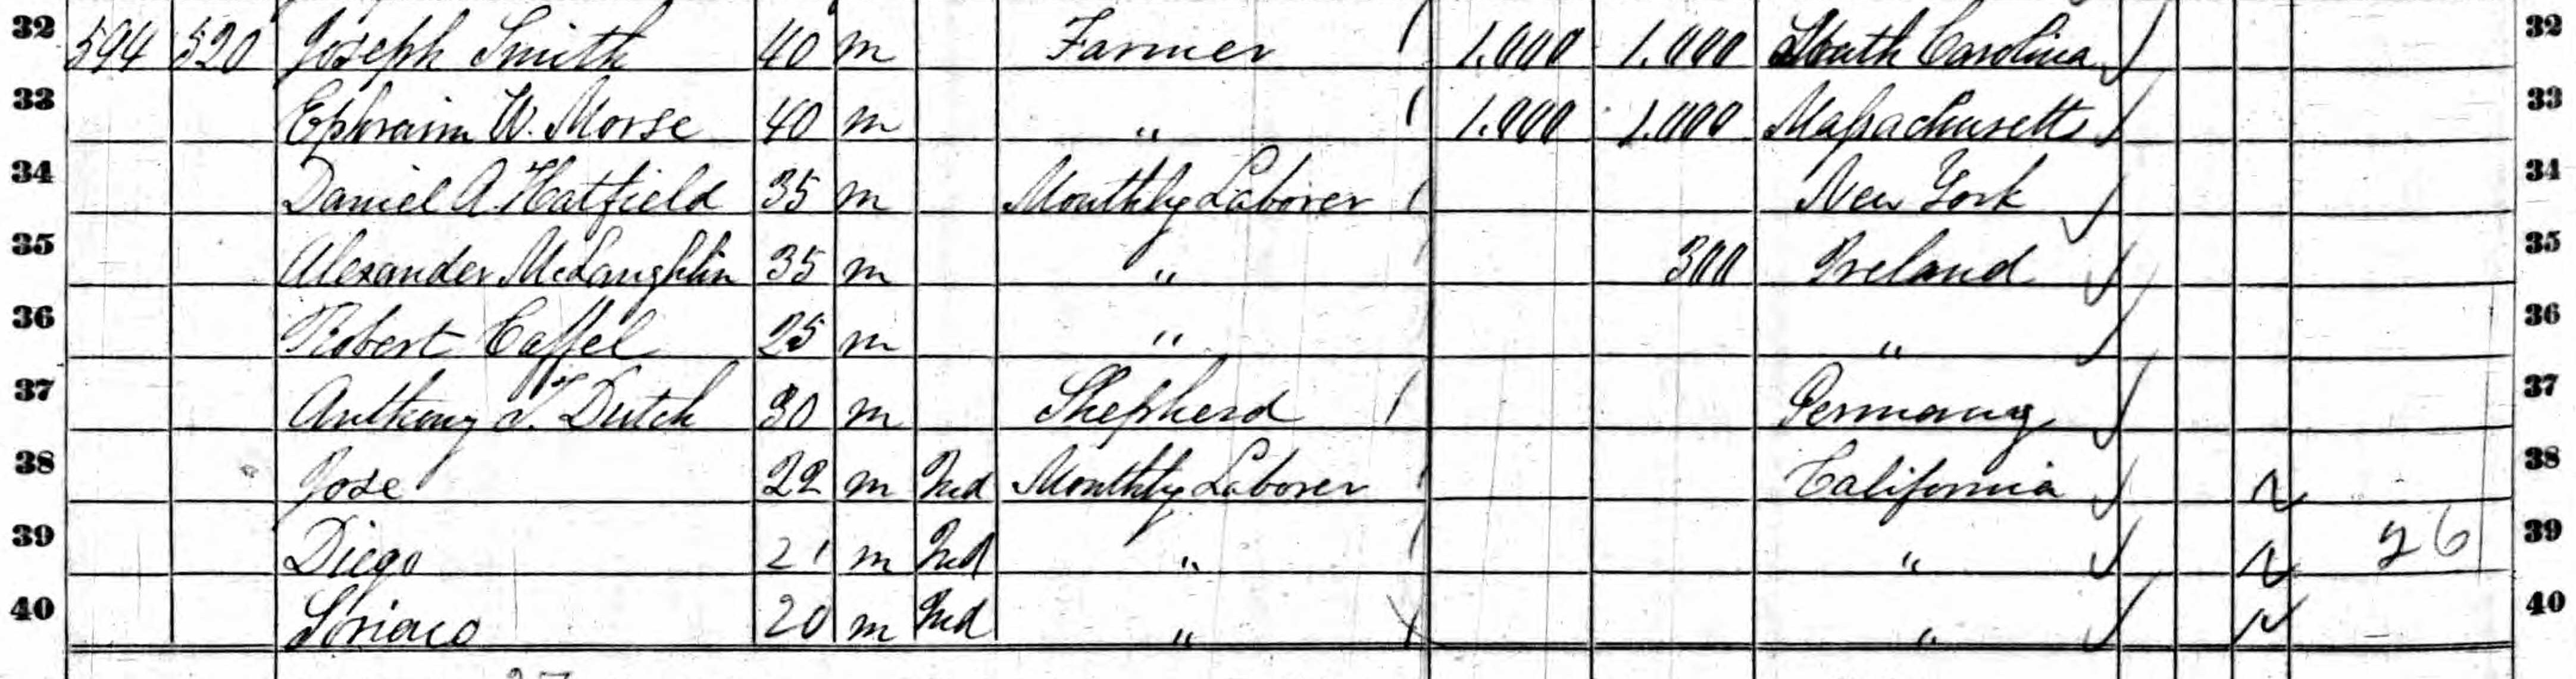 32 594 520 Joseph Smith 40 m Farmer 1 1.000 1.000 South Carolina 32
33 Ephraim W. Morse 40 m " 1 1.000 1.000 Massachusetts 33
34 Daniel A. Hatfield 35 m Monthly Laborer 1 New York 34
35 Alexander McLaughlin 35 m " 300 Ireland 35
36 Robert Caffel 25 m " " 36
37 Anthony T. Dutch 30 m Shepherd 1 Germany 37
38 Jose 22 m Ind Monthly Laborer California 38
39 Diego 21 m Ind " " 26 39
40 20 m Ind " " 40